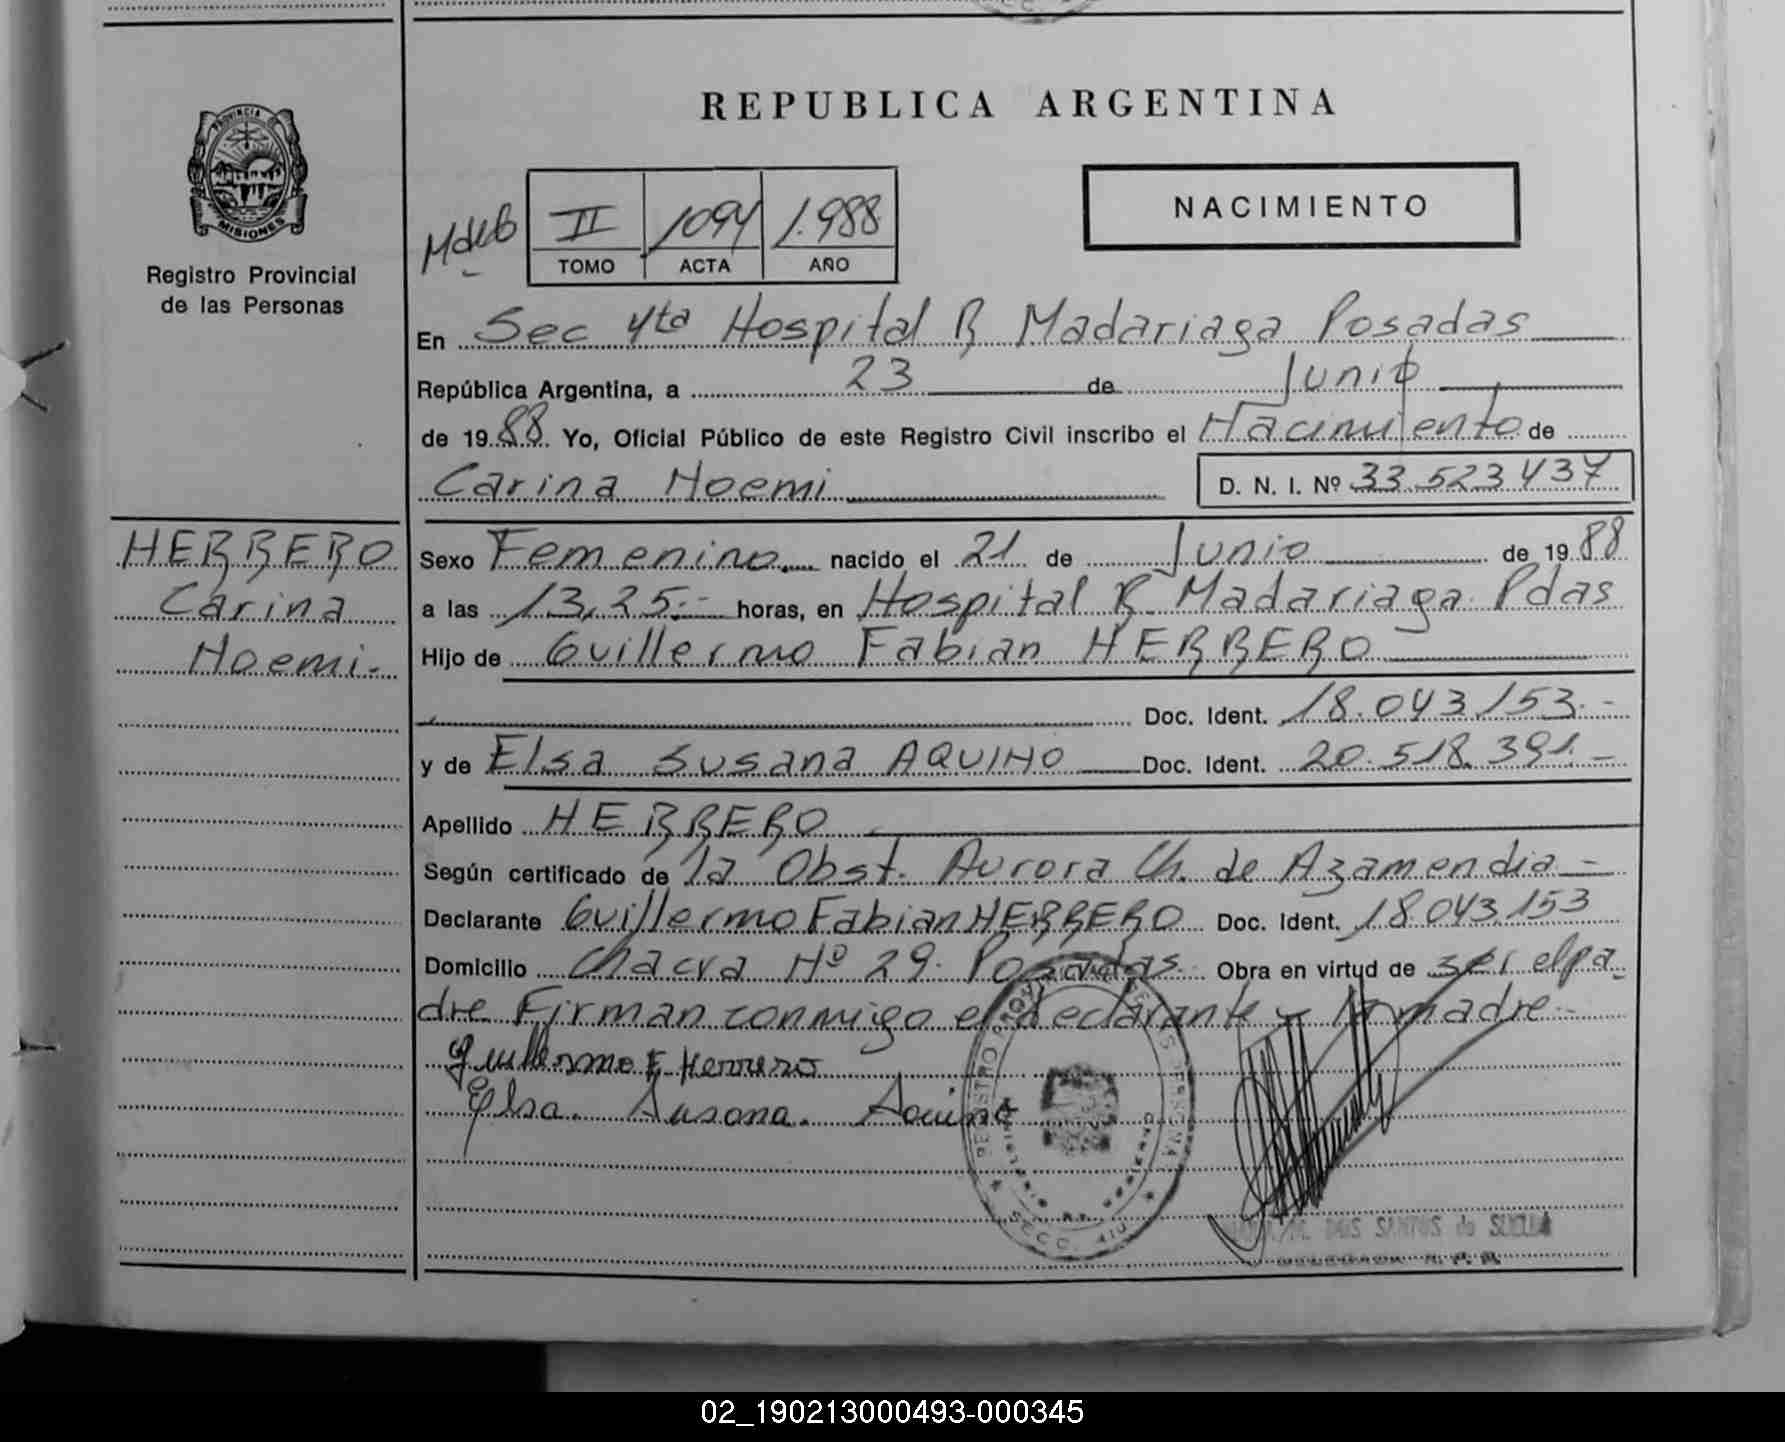 REPUBLICA ARGENTINA
PROVINCIA DE MISIONES
Registro Provincial
de las Personas
II 1094 1.988
TOMO ACTA AÑO
NACIMIENTO
En Sec 4ta Hospital R Madariaga Posadas
República Argentina, a 23 de Junio
de 1988 Yo, Oficial Público de este Registro Civil inscribo el Nacimiento de
Carina Noemi
D. N. I. Nº 33.523.437
HERRERO
Carina
Noemi.-
Sexo Femenino nacido el 21 de Junio de 1988
a las 13,25.- horas, en Hospital R. Madariaga Pdas
Hijo de Guillermo Fabian HERRERO
Doc. Ident. 18.043.153.-
y de Elsa Susana AQUINO Doc. Ident. 20.518.391.-
Apellido HERRERO
Según certificado de la Obst. Aurora Ch. de Azamendia-
Declarante Guillermo Fabian HERRERO Doc. Ident. 18.043.153
Domicilio Chacra Nº 29. Posadas. Obra en virtud de ser el pa-
dre Firman conmigo el declarante y la madre.-
Guillermo F. Herrero
Elsa. Susana. Aquino
SECC. 4ta
DOS SANTOS de
02_190213000493-000345